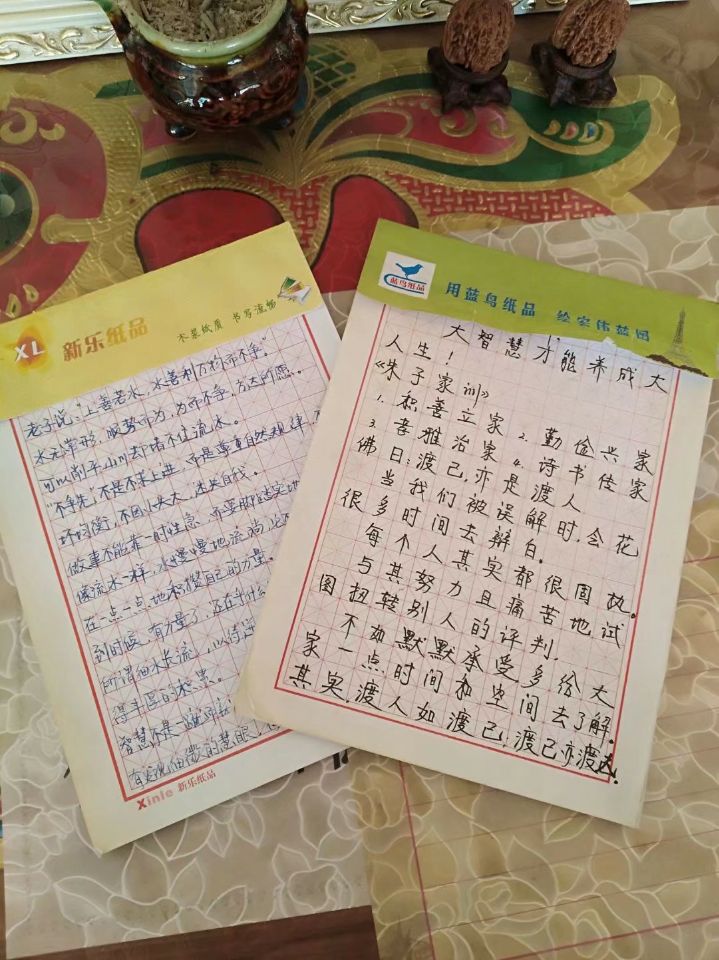 XL 新乐纸品
木浆纸质 书写流畅
老子说："上善若水,水善利万物而不争。"
水无常形,顺势而为,为而不争,方达所愿。
可以削平山川却堵不住流水。
"不争先,不是不求上进,而是尊重自然规律,
环均衡,不因小失大,迷失自我。
做事不能靠一时性急,而要脚踏实地
像流水一样,水慢慢地流淌,
在一点一点地积攒自己的力量。
到时候,有力量了,还在乎什么
所谓细水长流,以待
得丰厚的积累。
智慧不是一蹴而就
有发现细微的慧眼,
Xinle 新乐纸品
蓝鸟纸品
用蓝鸟纸品 绘宏伟蓝图
大智慧才能养成大
人生!
《朱子家训》
1. 积善立家 2. 勤俭兴家
3. 孝雅治家 4. 诗书传家
佛曰:渡己,亦是渡人
当我们被误解时,会花
很多时间去辩白。
每个人其实都很固执。
与其努力且痛苦地试
图扭转别人的评判,
不如默默承受,多给大
家一点时间和空间去了解。
其实,渡人如渡己,渡己亦渡